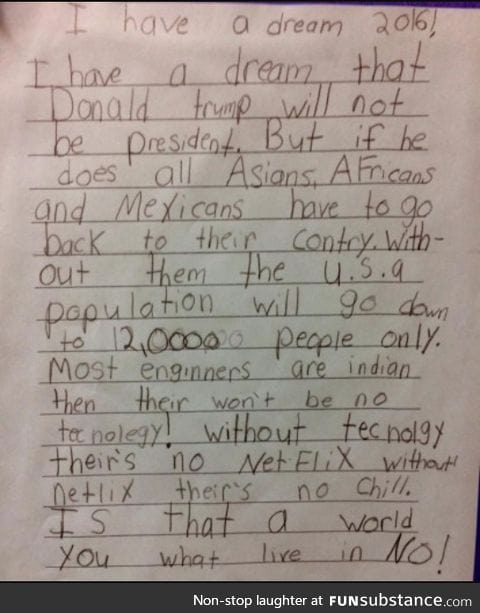 I have a dream 2016!
I have a dream that
Donald trump will not
be president. But if he
does all Asians, AFricans
and Mexicans have to go
back to their contry. With-
out them the u.s.a
population will go down
to 12,000000 people only.
Most enginners are indian
then their won't be no
tecnolegy! without tecnolgy
their's no NetFliX without
netlix their's no chill.
IS that a world
you what live in NO!
Non-stop laughter at FUNsubstance.com